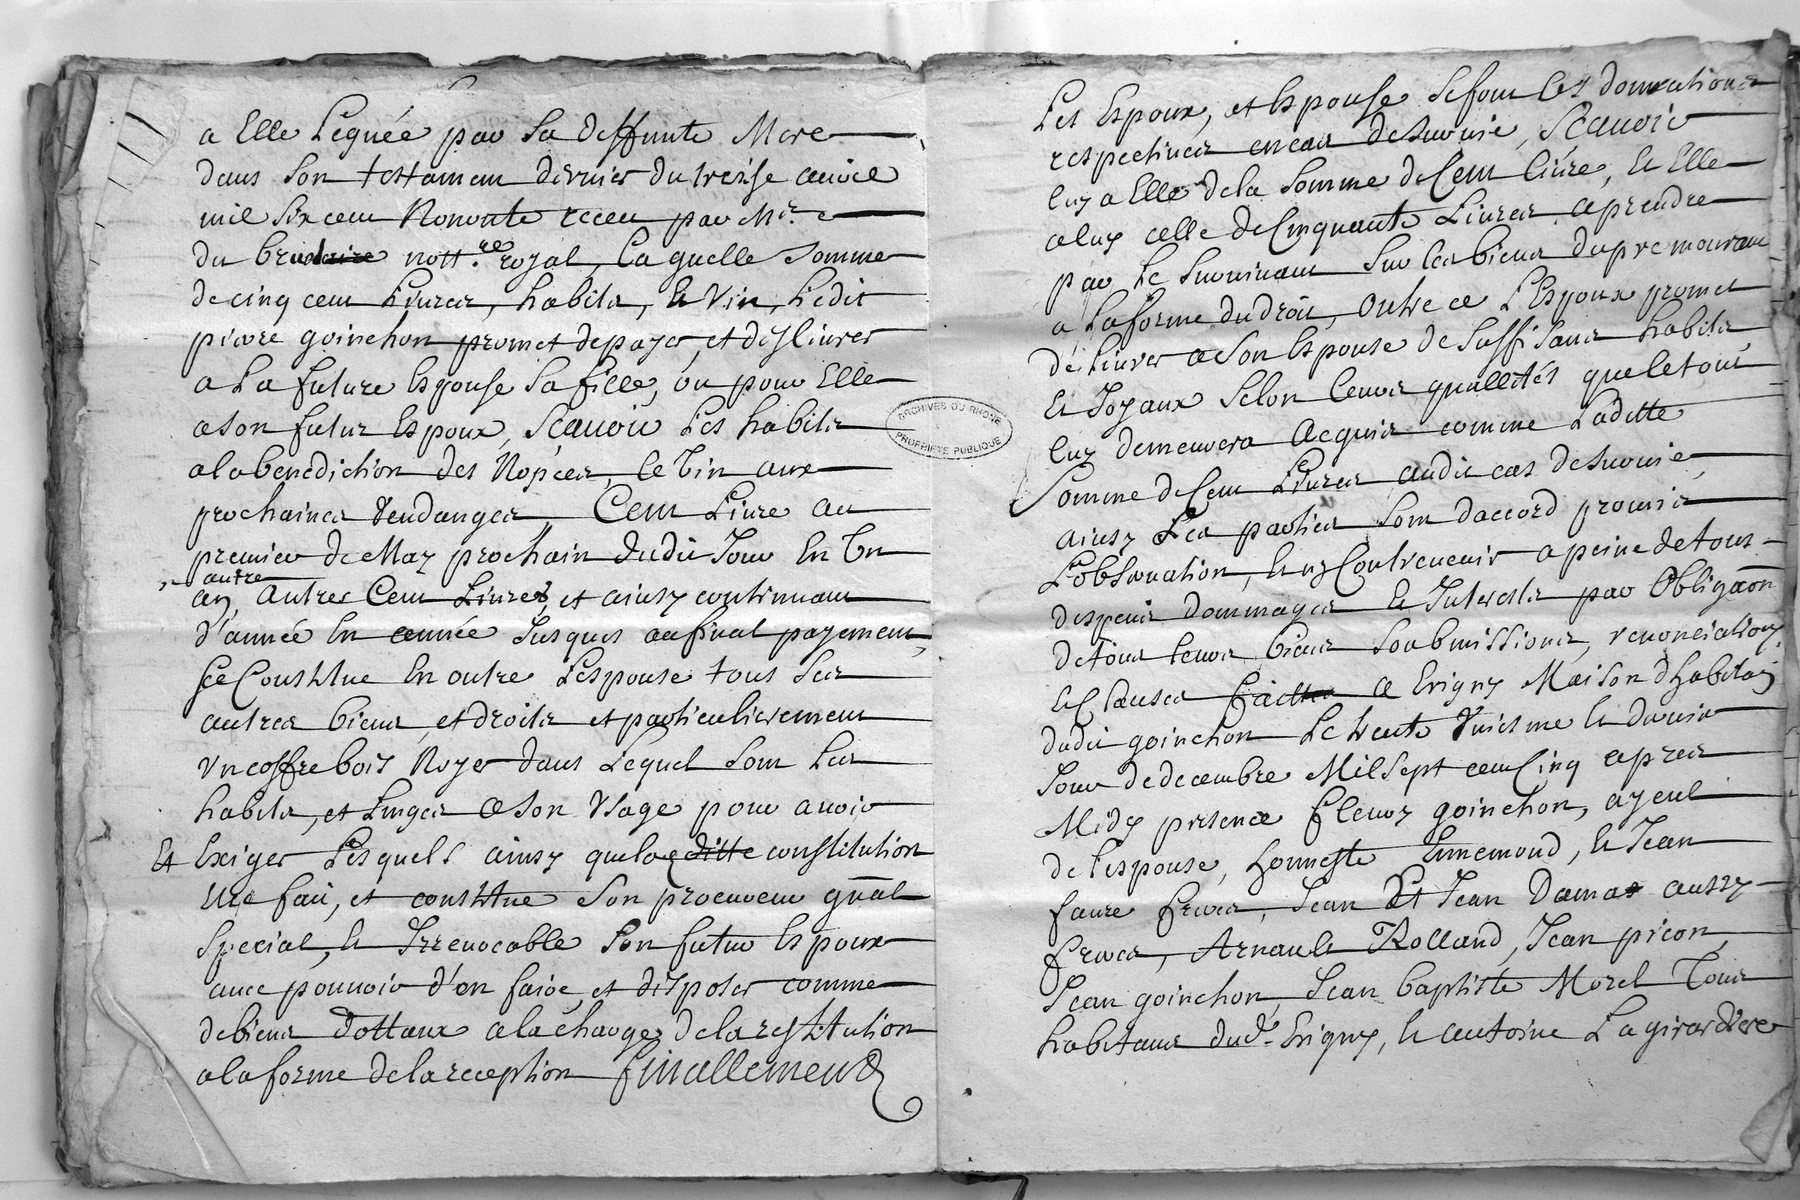 a Elle Leguée par Sa deffunte Mere
dans Son testament dernier du treise auril
mil Six cent Nonante receu par Mr. e
du bruitaire nott.re royal, Laquelle Somme
de cinq cent Liures, habits, Et Vin, Ledit
pierre goinchon promet de payer, et desliurer
a La future Espouse Sa fille, ou pour Elle
a son futur Espoux, Scauoir Les habits
a la benediction des Nopces, le Vin aux
prochaines Vendanges, Cent Liure au
premier de May prochain dudit Jour En Un
autre
an, autres Cent Liures, et ainsy continuant
d'année En année Jusques au final payement,
Se Constitue En outre L'espouse tous Ses
autres biens, et droits et particulierement
Un coffre bois Noyer dans Lequel Sont Ses
habits, et Linges a Son Usage pour auoir
Et Exiger Lesquels ainsy que laditte constitution
Elle fait, et constitue Son procureur gnāl
Special, Et Irreuocable Son futur Espoux
auec pouuoir d'en faire, et disposer comme
de biens dottaux a la charge de la restitution
a la forme de la reception finallement
Les Espoux, et Espouse Se font Les donnations
respectiues en cas de Suruie, Scauoir
luy a Elle de la Somme de Cent liure, Et Elle
a luy celle de Cinquante Liures a prendre
par Le Suruiuant Sur les biens du premourant
a La forme du droit, Outre ce L'Espoux promet
de Liurer a Son Espouse de Suffisans habits
Et Joyaux Selon leurs quallités que le tout
luy demeurera acquis comme Laditte
Somme de Cent Liures audit cas de Suruie,
ainsy Les parties Sont d'accord promis
L'obseruation, Et ny Contreuenir a peine de tous
despens dommages Et Interests par Obligaōn
de tous leurs biens Soubmissions, renonciations,
Et Clauses faict a Erigny Maison d'habitaōn
dudit goinchon Le trente Unieme Et dernier
Jour de decembre Mil Sept cent Cinq apres
Midy presence fleury goinchon, ayeul
de l'espouse, honneste Ennemond, Et Jean
faure freres, Jean Et Jean Damas aussy
freres, Arnault Rolland, Jean picon,
Jean goinchon, Jean baptiste Morel Tous
habitans dud. Erigny, Et antoine Lagirardiere
ARCHIVES DU RHONE
PROPRIETE PUBLIQUE